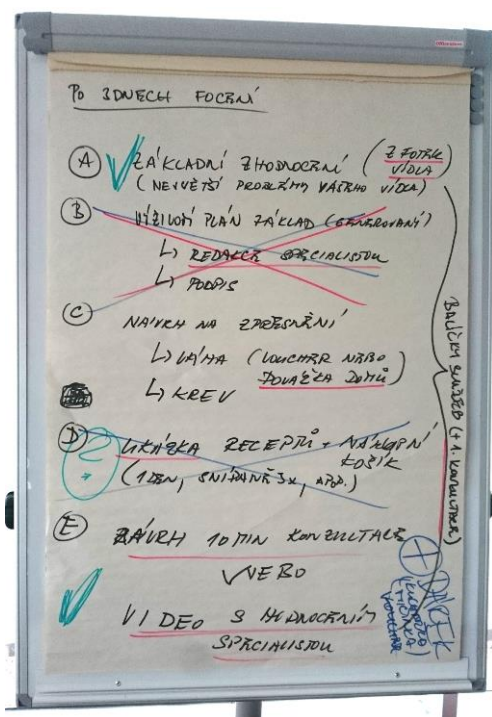 PO 3 DNECH FOCENÍ
A ZÁKLADNÍ ZHODNOCENÍ (Z FOTEK
JÍDLA
(NEJVĚTŠÍ PROBLÉMY VAŠEHO JÍDLA)
B VÝŽIVOVÝ PLÁN ZÁKLAD (GENEROVANÝ)
↳ REDAKCE SPECIALISTOU
↳ PODPIS
C NÁVRH NA ZPŘESNĚNÍ
↳ VÁHA (VOUCHER NEBO
POVÁŽKA DOMŮ)
↳ KREV
D UKÁZKA RECEPTŮ + NÁKUPNÍ
KOŠÍK
(1 DEN, SNÍDANĚ 3x, APOD.)
E ZÁVĚR 10 MIN KONZULTACE
NEBO
VIDEO S HODNOCENÍM
SPECIALISTOU
BALÍČKY SLUŽEB (+ 1. KONZULTACE)
+ DÁREK